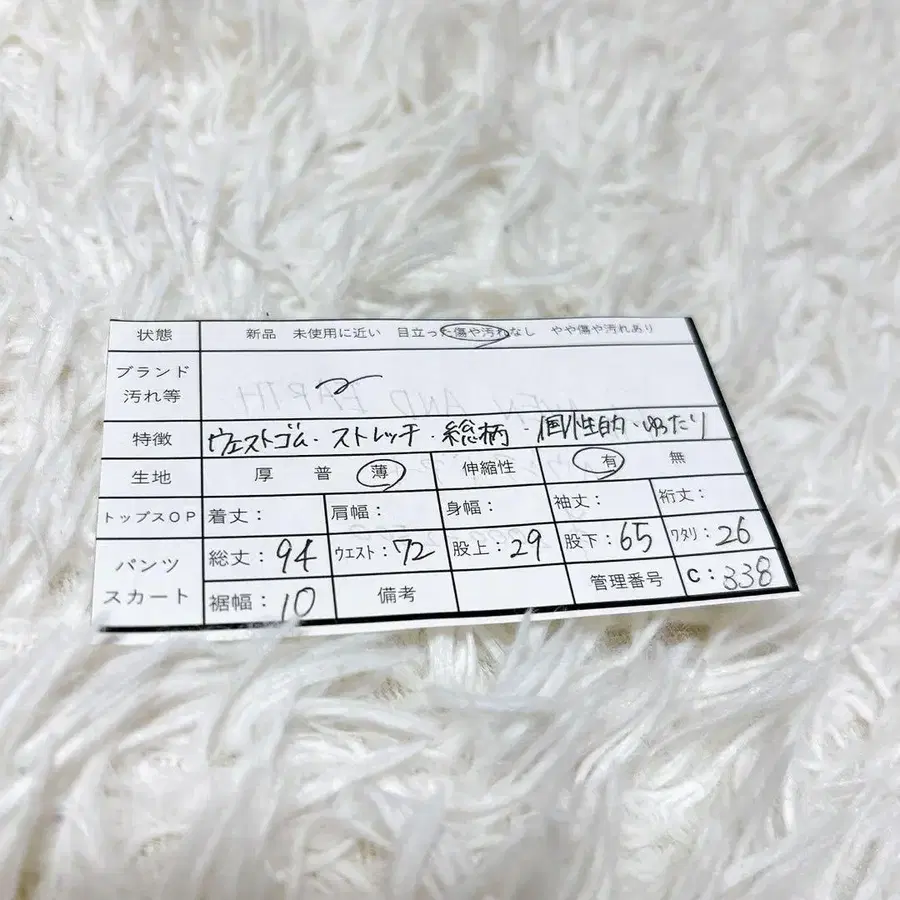 状態 新品 未使用に近い 目立った傷や汚れなし やや傷や汚れあり
ブランド
汚れ等
特徴 ウエストゴム・ストレッチ・総柄・個性的・ゆったり
生地 厚 普 薄 伸縮性 有 無
トップスOP 着丈: 肩幅: 身幅: 袖丈: 裄丈:
パンツ 総丈:94 ウエスト:72 股上:29 股下:65 ワタリ:26
スカート 裾幅:10 備考 管理番号 C:338